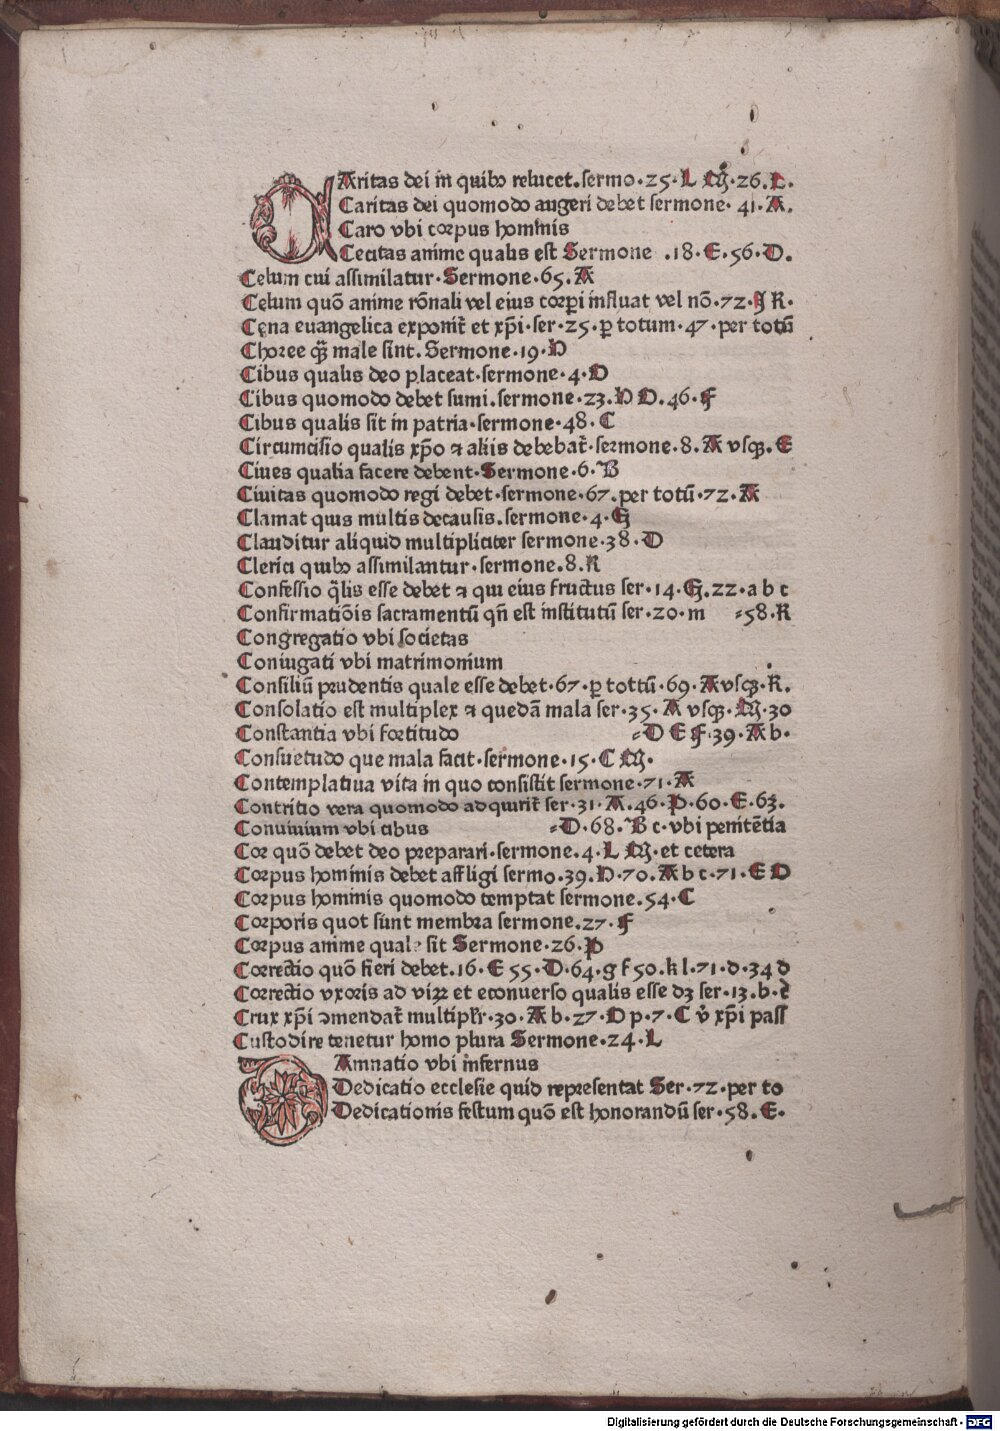 CAritas dei in quibꝰ relucet.sermo.25.L M.26.L.
Caritas dei quomodo augeri debet sermone. 41.A.
Caro vbi corpus hominis
Cecitas anime qualis est Sermone .18.E.56.D.
Celum cui assimilatur.Sermone.65.A
Celum quō anime rōnali vel eius corpi influat vel nō.72.J K.
Cena euangelica exponit̄ et xp̄i.ser.25.ꝑ totum.47.per totū
Choree q̄ꝫ male sint.Sermone.19.N
Cibus qualis deo placeat.sermone.4.O
Cibus quomodo debet sumi.sermone.23.N O.46.F
Cibus qualis sit in patria.sermone.48.C
Circumcisio qualis xp̄o ⁊ aliis debebat̄.sermone.8.A vsqꝫ.E
Ciues qualia facere debent.Sermone.6.B
Ciuitas quomodo regi debet.sermone.67.per totū.72.A
Clamat quis multis decausis.sermone.4.G
Clauditur aliquid multipliciter sermone.38.D
Clerici quibꝰ assimilantur.sermone.8.K
Confessio q̄lis esse debet ⁊ qui eius fructus ser.14.G.22.a b c
Confirmatiōis sacramentū qn̄ est institutū ser.20.m ⸗58.K
Congregatio vbi societas
Coniugati vbi matrimonium
Consiliū prudentis quale esse debet.67.ꝑ tottū.69.A vsqꝫ.K.
Consolatio est multiplex ⁊ quedā mala ser.35.A vsqꝫ.M.30
Constantia vbi fortitudo ⸗D E F.39.A b.
Consuetudo que mala facit.sermone.15.C M.
Contemplatiua vita in quo consistit sermone.71.A
Contritio vera quomodo adquirit̄ ser.31.A.46.P.60.E.63.
Conuiuium vbi cibus ⸗D.68.B c.vbi penitētia
Cor quō debet deo preparari.sermone.4.L M.et cetera
Corpus hominis debet affligi sermo.39.N.70.A b c.71.E O
Corpus hominis quomodo temptat sermone.54.C
Corporis quot sunt membra sermone.27.F
Corpus anime quale sit Sermone.26.P
Correctio quō fieri debet.16.E 55.D.64.g f 50.k l.71.d.34 d
Correctio vxoris ad viꝝ et econuerso qualis esse dꝫ ser.13.b.c̄
Crux xp̄i ꝯmendat̄ multipl̄r.30.A b.27.O p.7.C v̉ xp̄i pass
Custodire tenetur homo plura Sermone.24.L
DAmnatio vbi infernus
Dedicatio ecclesie quid representat Ser.72.per to
Dedicationis festum quō est honorandū ser.58.E.
Digitalisierung gefördert durch die Deutsche Forschungsgemeinschaft - DFG